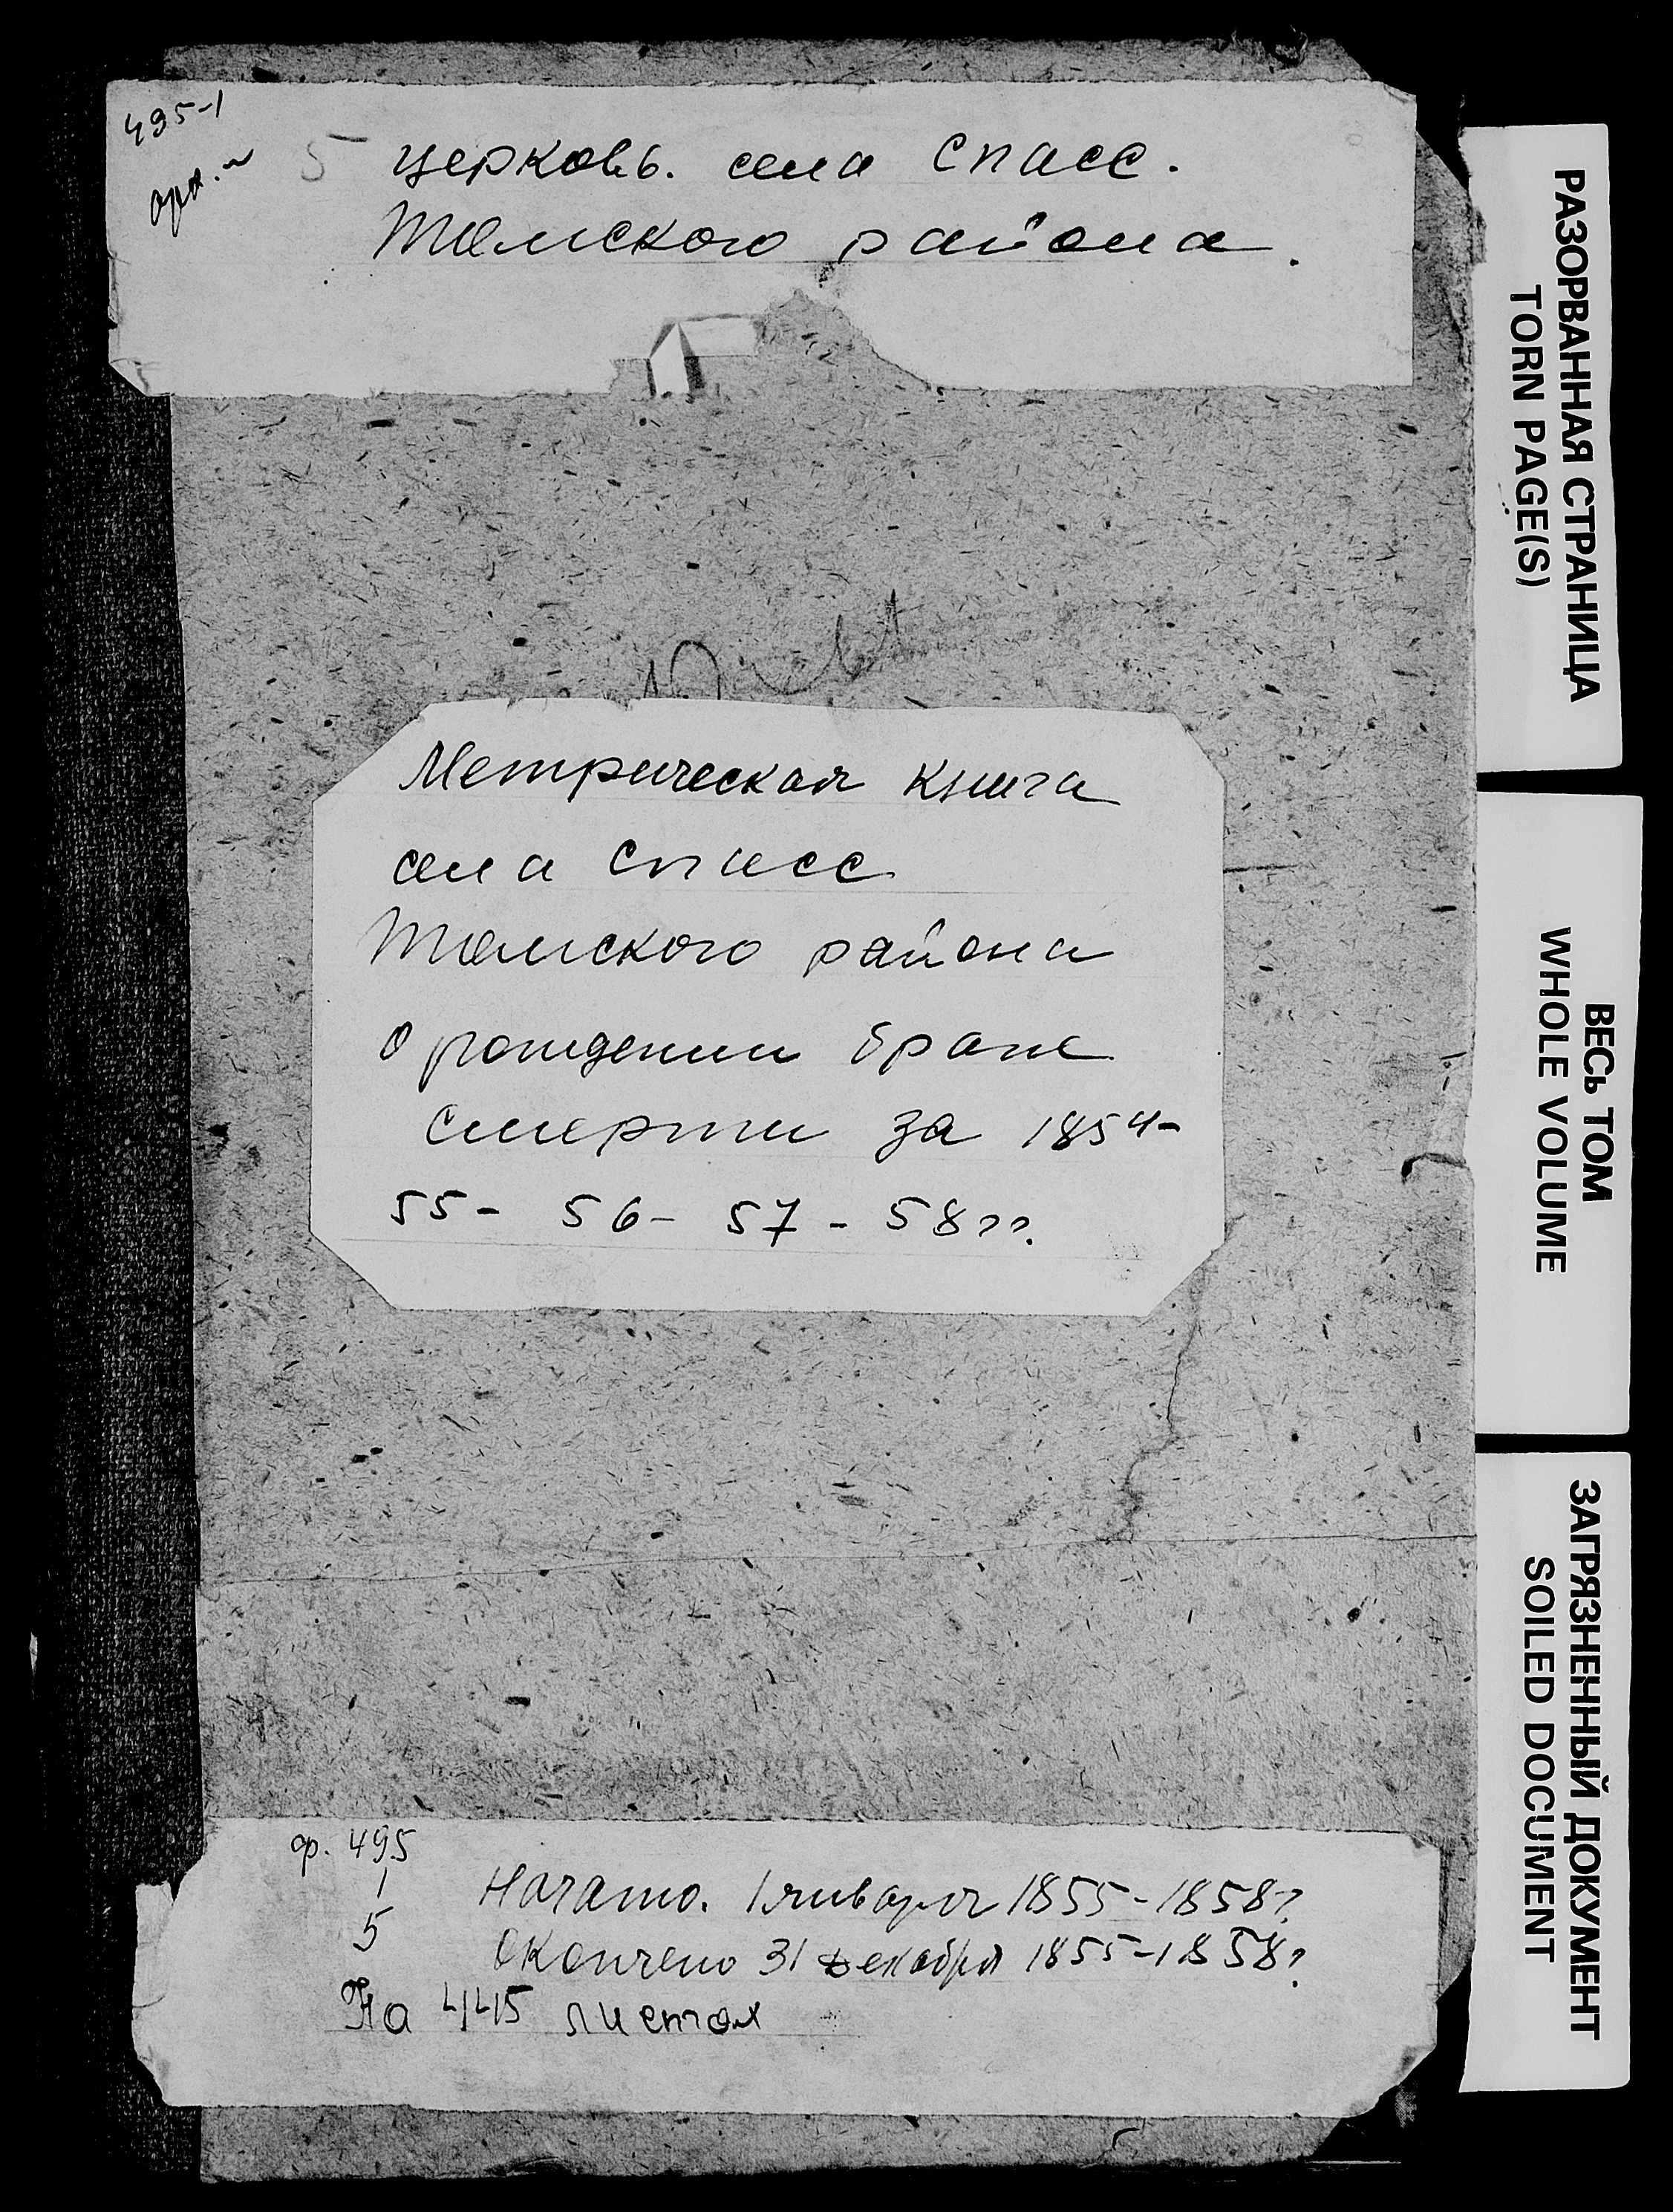 495-1
5 церковь. села Спасс.
Томского района.
Метрическая книга
села Спасс
Томского района
о рождении браке
смерти за 1854-
55- 56- 57- 58гг.
ф. 495
1
5
Начато. 1 января 1855-1858г.
Окончено 31 декабря 1855-1858г.
На 445 листах
РАЗОРВАННАЯ СТРАНИЦА
TORN PAGE(S)
ВЕСЬ ТОМ
WHOLE VOLUME
ЗАГРЯЗНЕННЫЙ ДОКУМЕНТ
SOILED DOCUMENT